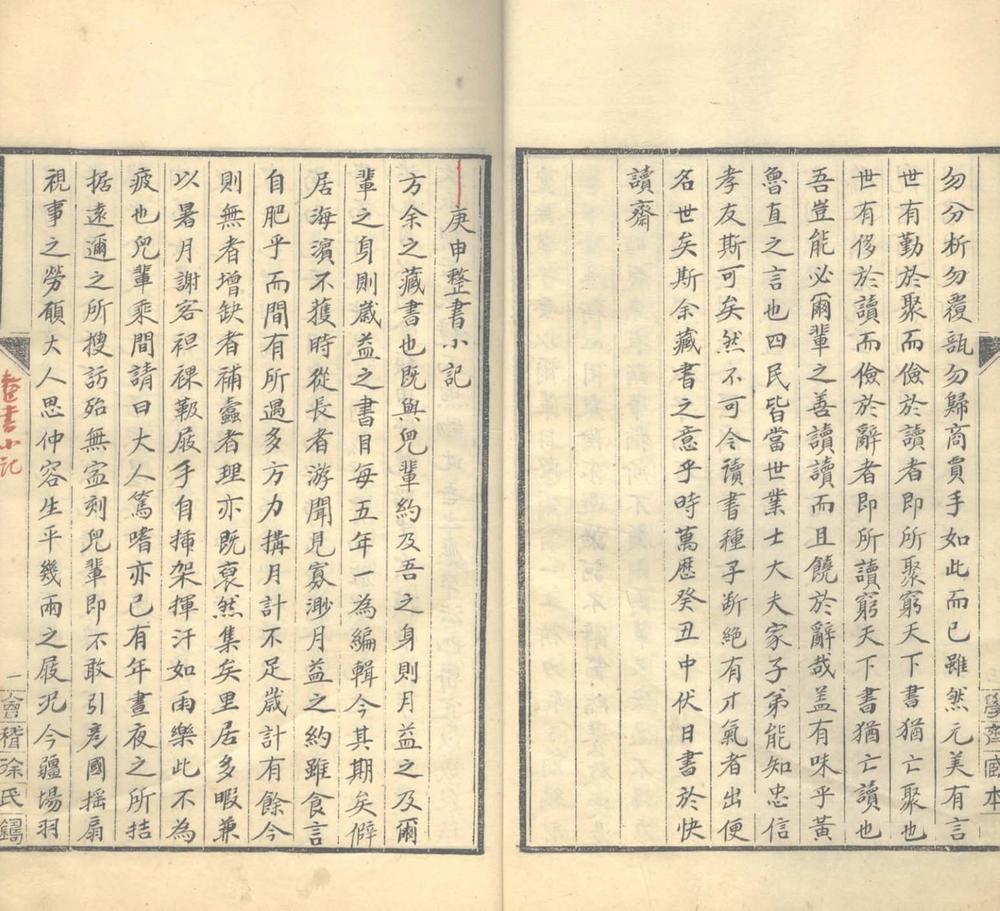 勿分析勿覆瓿勿歸商賈手如此而已雖然元美有言
世有勤於聚而儉於讀者即所聚窮天下書猶亡聚也
世有侈於讀而儉於辭者即所讀窮天下書猶亡讀也
吾豈能必爾輩之善讀讀而且饒於辭哉盖有味乎黃
魯直之言也四民皆當世業士大夫家子弟能知忠信
孝友斯可矣然不可令讀書種子斷絕有才氣者出便
名世矣斯余藏書之意乎時萬歷癸丑中伏日書於快
讀齋
學齋國本
庚申整書小記
方余之藏書也既與兒輩約及吾之身則月益之及爾
輩之身則歲益之書目每五年一為編輯今其期矣僻
居海濵不獲時從長者游聞見寡渺月益之約雖食言
自肥乎而間有所遇多方力搆月計不足歲計有餘今
則無者增缺者補蠹者理亦既裒然集矣里居多暇兼
以暑月謝客袒裸靸屐手自揷架揮汗如雨樂此不為
疲也兒輩乘間請曰大人篤嗜亦已有年晝夜之所拮
据遠邇之所搜訪殆無寍刻兒輩即不敢引彥國搖扇
視事之勞願大人思仲容生平幾兩之屐况今疆場羽
書小記
一
會稽徐氏鑄